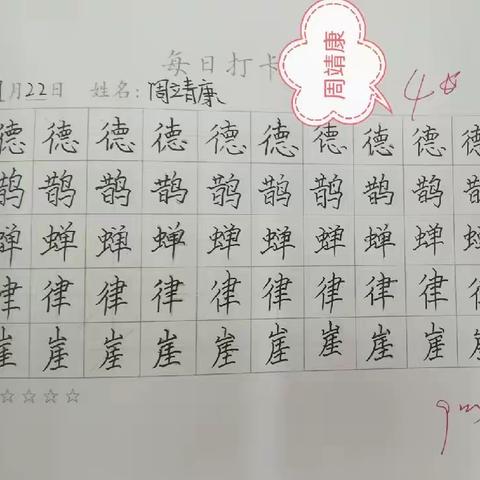 每日打卡
周靖康
月22日 姓名:周靖康
4☆
德 德 德 德 德 德 德 德 德 德
鹊 鹊 鹊 鹊 鹊 鹊 鹊 鹊 鹊 鹊
蝉 蝉 蝉 蝉 蝉 蝉 蝉 蝉 蝉 蝉
律 律 律 律 律 律 律 律 律 律
崖 崖 崖 崖 崖 崖 崖 崖 崖 崖
☆☆☆☆